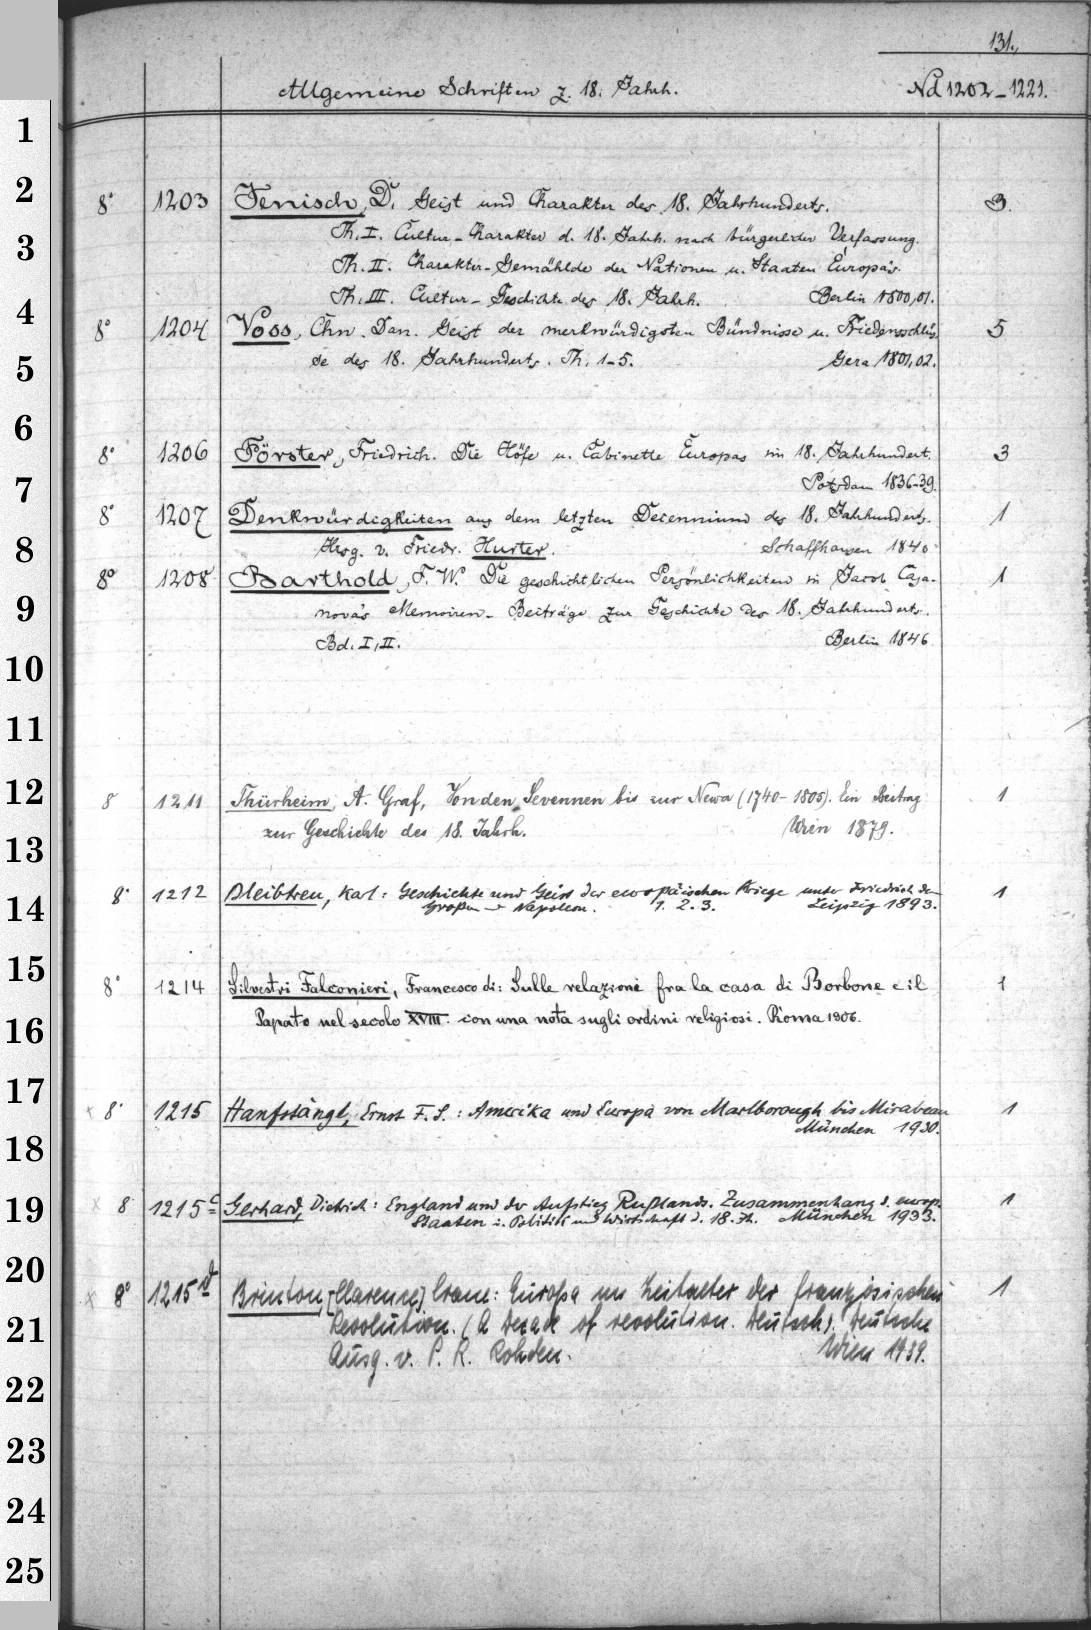 131.
Allgemeine Schriften z. 18. Jahrh. Nd 1202-1221.
1
2
8° 1203 Jenisch, D. Geist und Charakter des 18. Jahrhunderts. 3.
3
Th. I. Cultur-Charakter d. 18. Jahrh. nach bürgerlicher Verfassung.
Th. II. Charakter-Gemählde der Nationen u. Staaten Europa's.
Th. III. Cultur-Geschichte des 18. Jahrh. Berlin 1800,01.
4
8° 1204 Voss, Chn. Dan. Geist der merkwürdigsten Bündnisse u. Friedensschlüs
5
se des 18. Jahrhunderts. Th. 1-5. Gera 1801,02.
6
8° 1206 Förster, Friedrich. Die Höfe u. Cabinette Europas im 18. Jahrhundert. 3
7
Potsdam 1836-39.
8° 1207 Denkwürdigkeiten aus dem letzten Decennium des 18. Jahrhunderts. 1
8
Hrsg. v. Friedr. Hurter. Schaffhausen 1840
8° 1208 Barthold, F. W. Die geschichtlichen Persönlichkeiten in Jacob Casa- 1
9
nova's Memoiren- Beiträge zur Geschichte des 18. Jahrhunderts.
10
Bd. I, II. Berlin 1846
11
12
8 1211 Thürheim, A. Graf, Von den Sevennen bis zur Newa (1740-1805). Ein Beitrag 1
13
zur Geschichte des 18. Jahrh. Wien 1879.
14
8° 1212 Bleibtreu, Karl: Geschichte und Geist der europäischen Kriege unter Friedrich dem 1
Großen u. Napoleon. 1. 2. 3. Leipzig 1893.
15
8° 1214 Silvestri Falconieri, Francesco di: Sulle relazioni fra la casa di Borbone e il 1
16
Papato nel secolo XVIII. con una nota sugli ordini religiosi. Roma 1906.
17
x 8° 1215 Hanfstängl, Ernst F. S.: Amerika und Europa von Marlborough bis Mirabeau 1
18
München 1930.
19
x 8 1215c Gerhard, Dietrich: England und der Aufstieg Rußlands. Zusammenhang d. europ. 1
Staaten i. Politik und Wirtschaft d. 18. Jh. München 1933.
20
x 8° 1215d Brinton, [Clarence] Crane: Europa im Zeitalter der französischen 1
21
Revolution. (A Decade of revolution. Deutsch). Deutsche
Ausg. v. P. R. Rohden. Wien 1939.
22
23
24
25